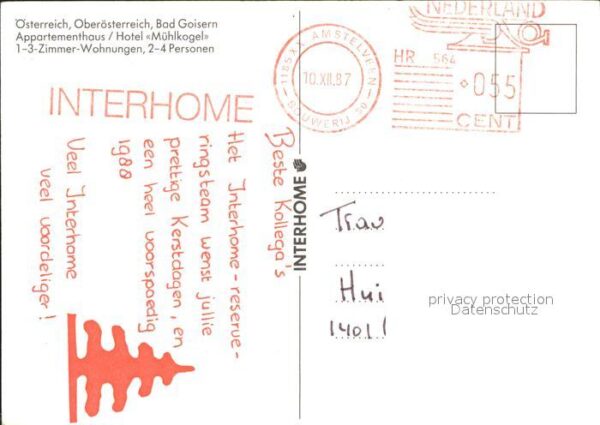 Österreich, Oberösterreich, Bad Goisern
Appartementhaus / Hotel «Mühlkogel»
1-3-Zimmer-Wohnungen, 2-4 Personen
INTERHOME
Beste Kollega's
Het Interhome-reserve-
ringsteam wenst jullie
prettige Kerstdagen, en
een heel voorspoedig
1988
Veel Interhome
veel voordeliger!
INTERHOME
NEDERLAND
1185XX AMSTELVEEN
BOUWERIJ 50
10.XII.87
HR 564
055
CENT
Trav
Hui
1401
privacy protection
Datenschutz